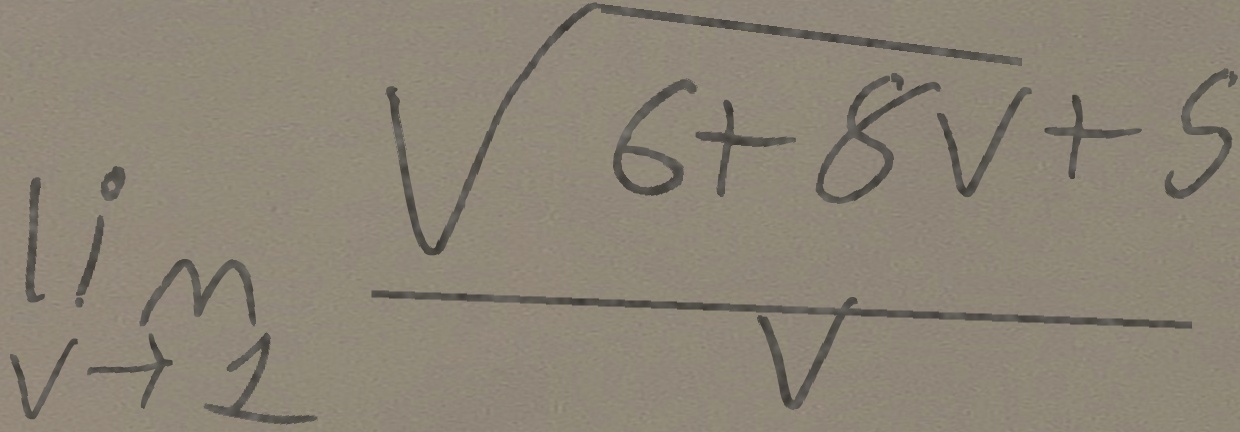 \lim_{v \to 2} \frac{\sqrt{6+8v}+5}{v}